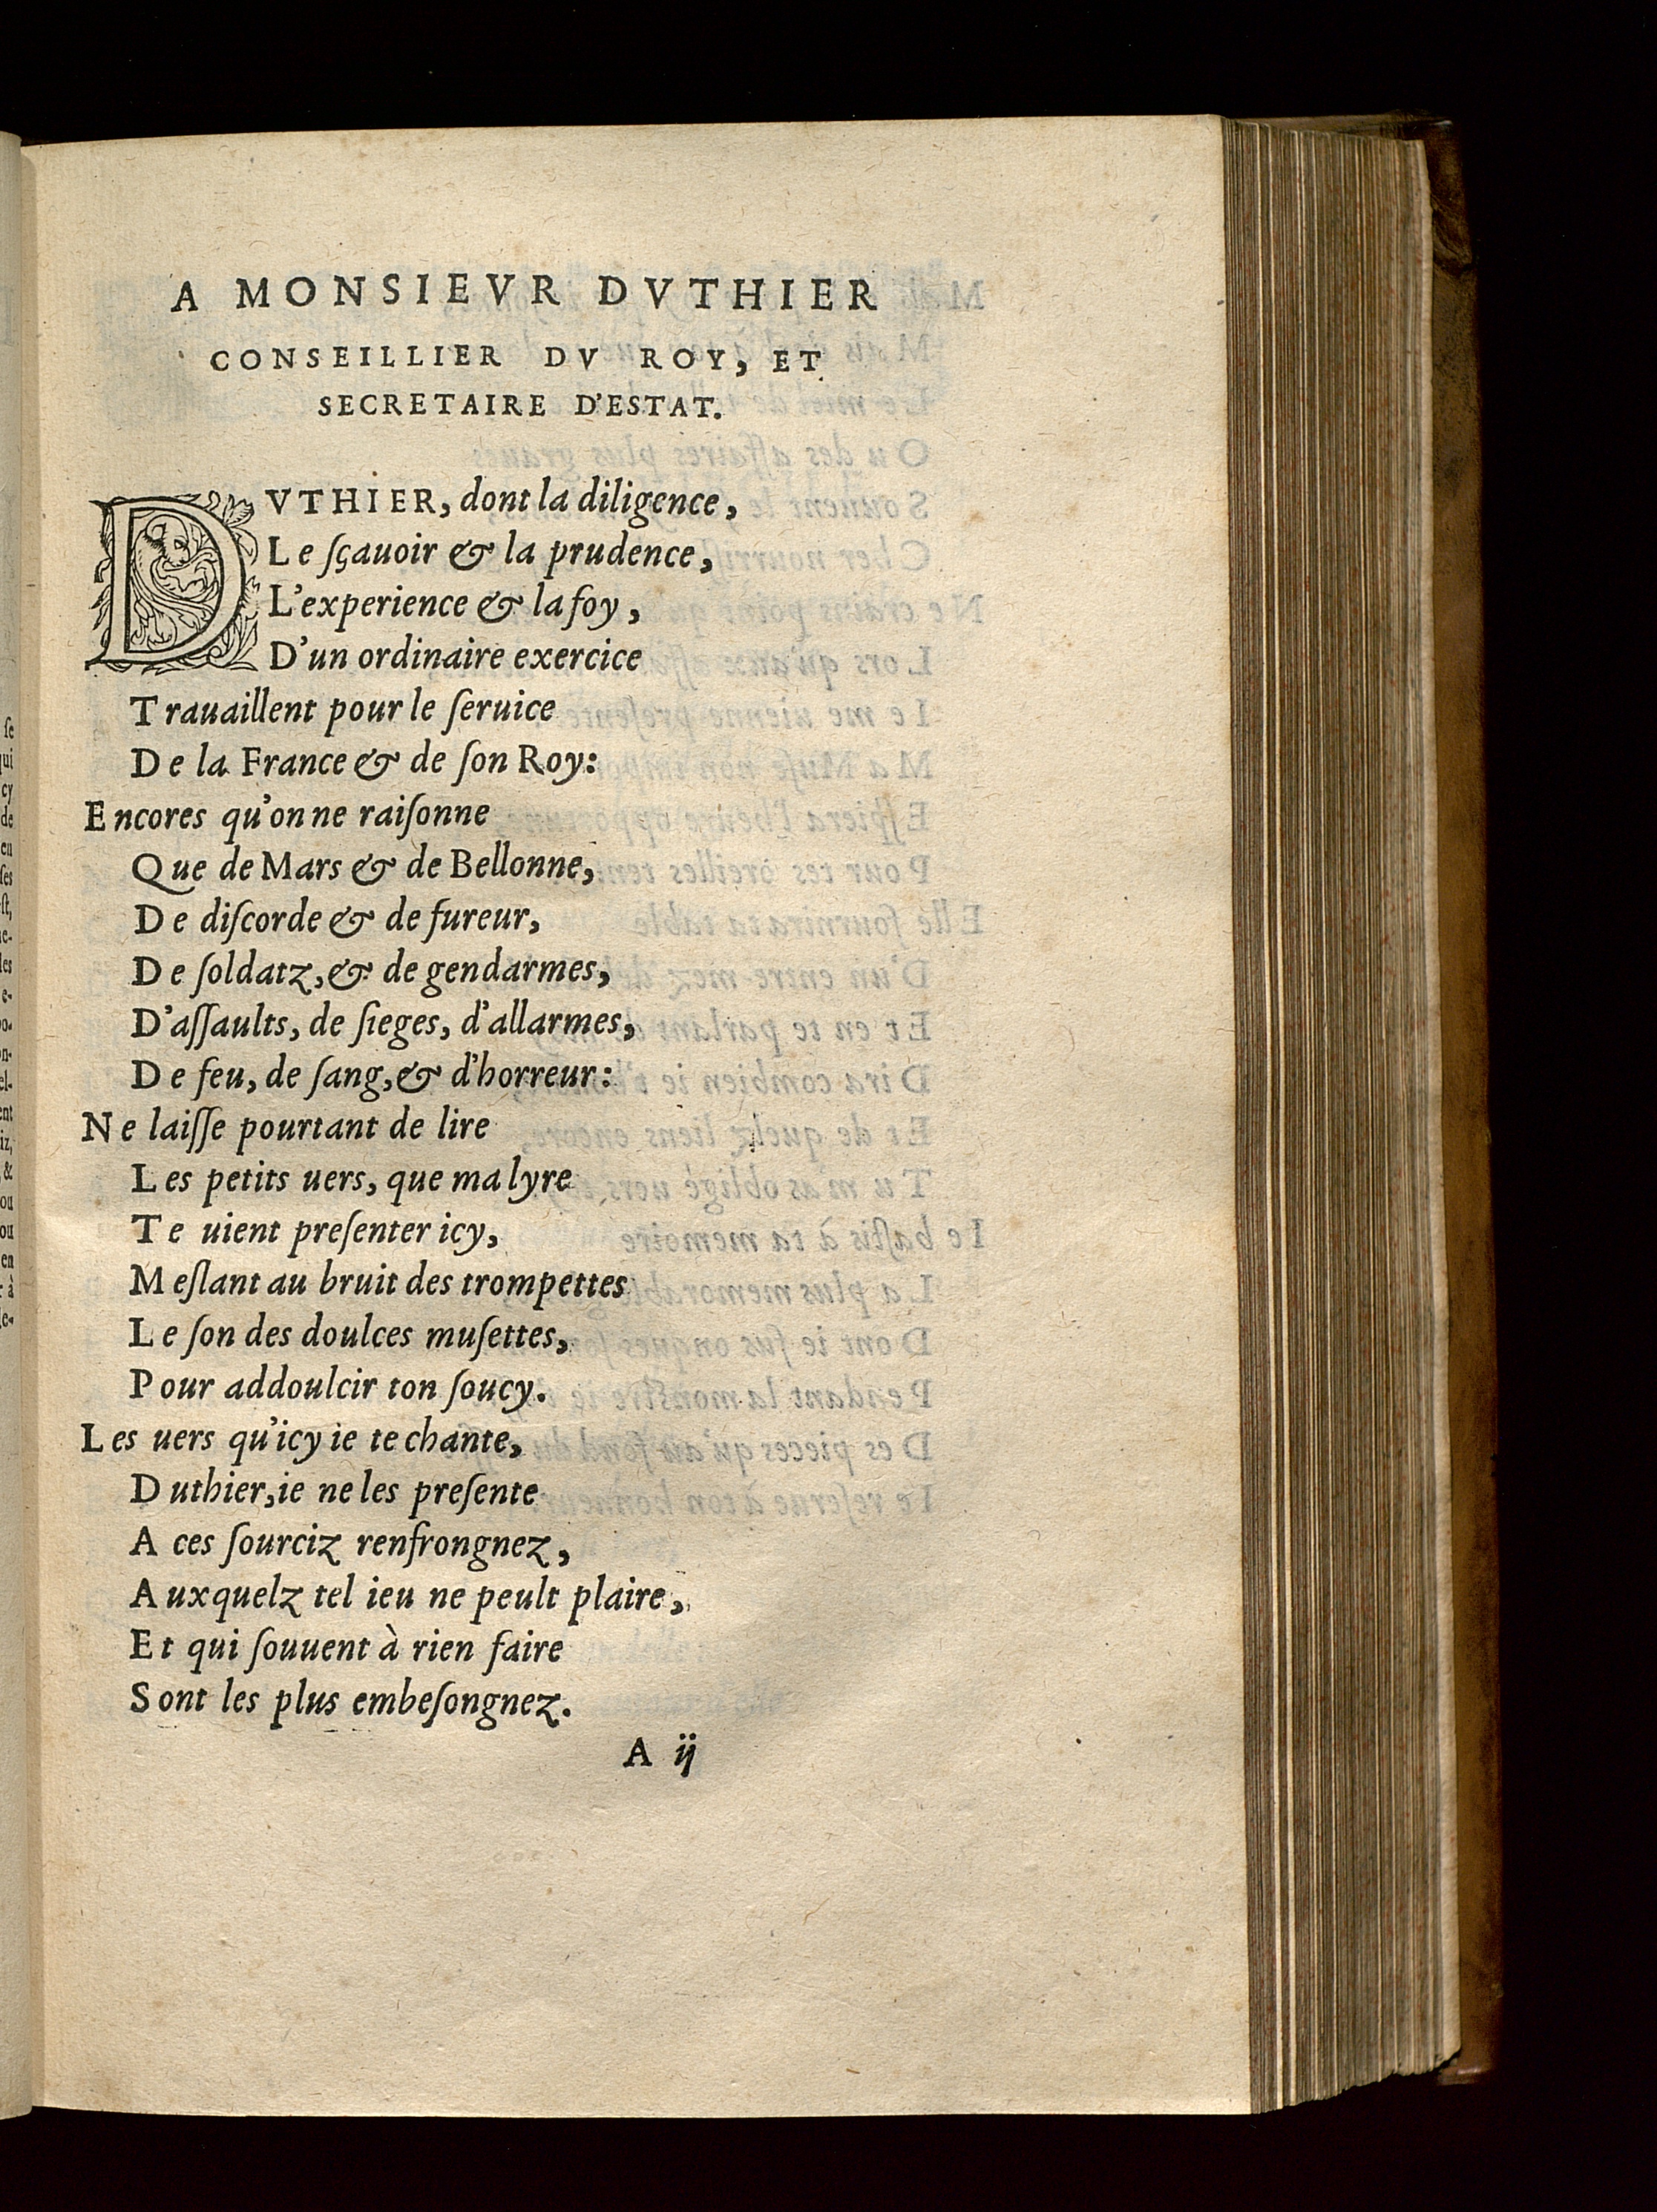 A MONSIEVR DVTHIER
CONSEILLIER DV ROY, ET
SECRETAIRE D'ESTAT.
DVTHIER, dont la diligence,
Le ſçauoir & la prudence,
L'experience & la foy,
D'un ordinaire exercice
Trauaillent pour le ſeruice
De la France & de ſon Roy:
Encores qu'on ne raiſonne
Que de Mars & de Bellonne,
De diſcorde & de fureur,
De ſoldatz, & de gendarmes,
D'aſſaults, de ſieges, d'allarmes,
De feu, de ſang, & d'horreur:
Ne laiſſe pourtant de lire
Les petits uers, que ma lyre
Te uient preſenter icy,
Meſlant au bruit des trompettes
Le ſon des doulces muſettes,
Pour addoulcir ton ſoucy.
Les uers qu'icy ie te chante,
Duthier, ie ne les preſente
A ces ſourciz renfrongnez,
Auxquelz tel ieu ne peult plaire,
Et qui ſouuent à rien faire
Sont les plus embeſongnez.
A ij